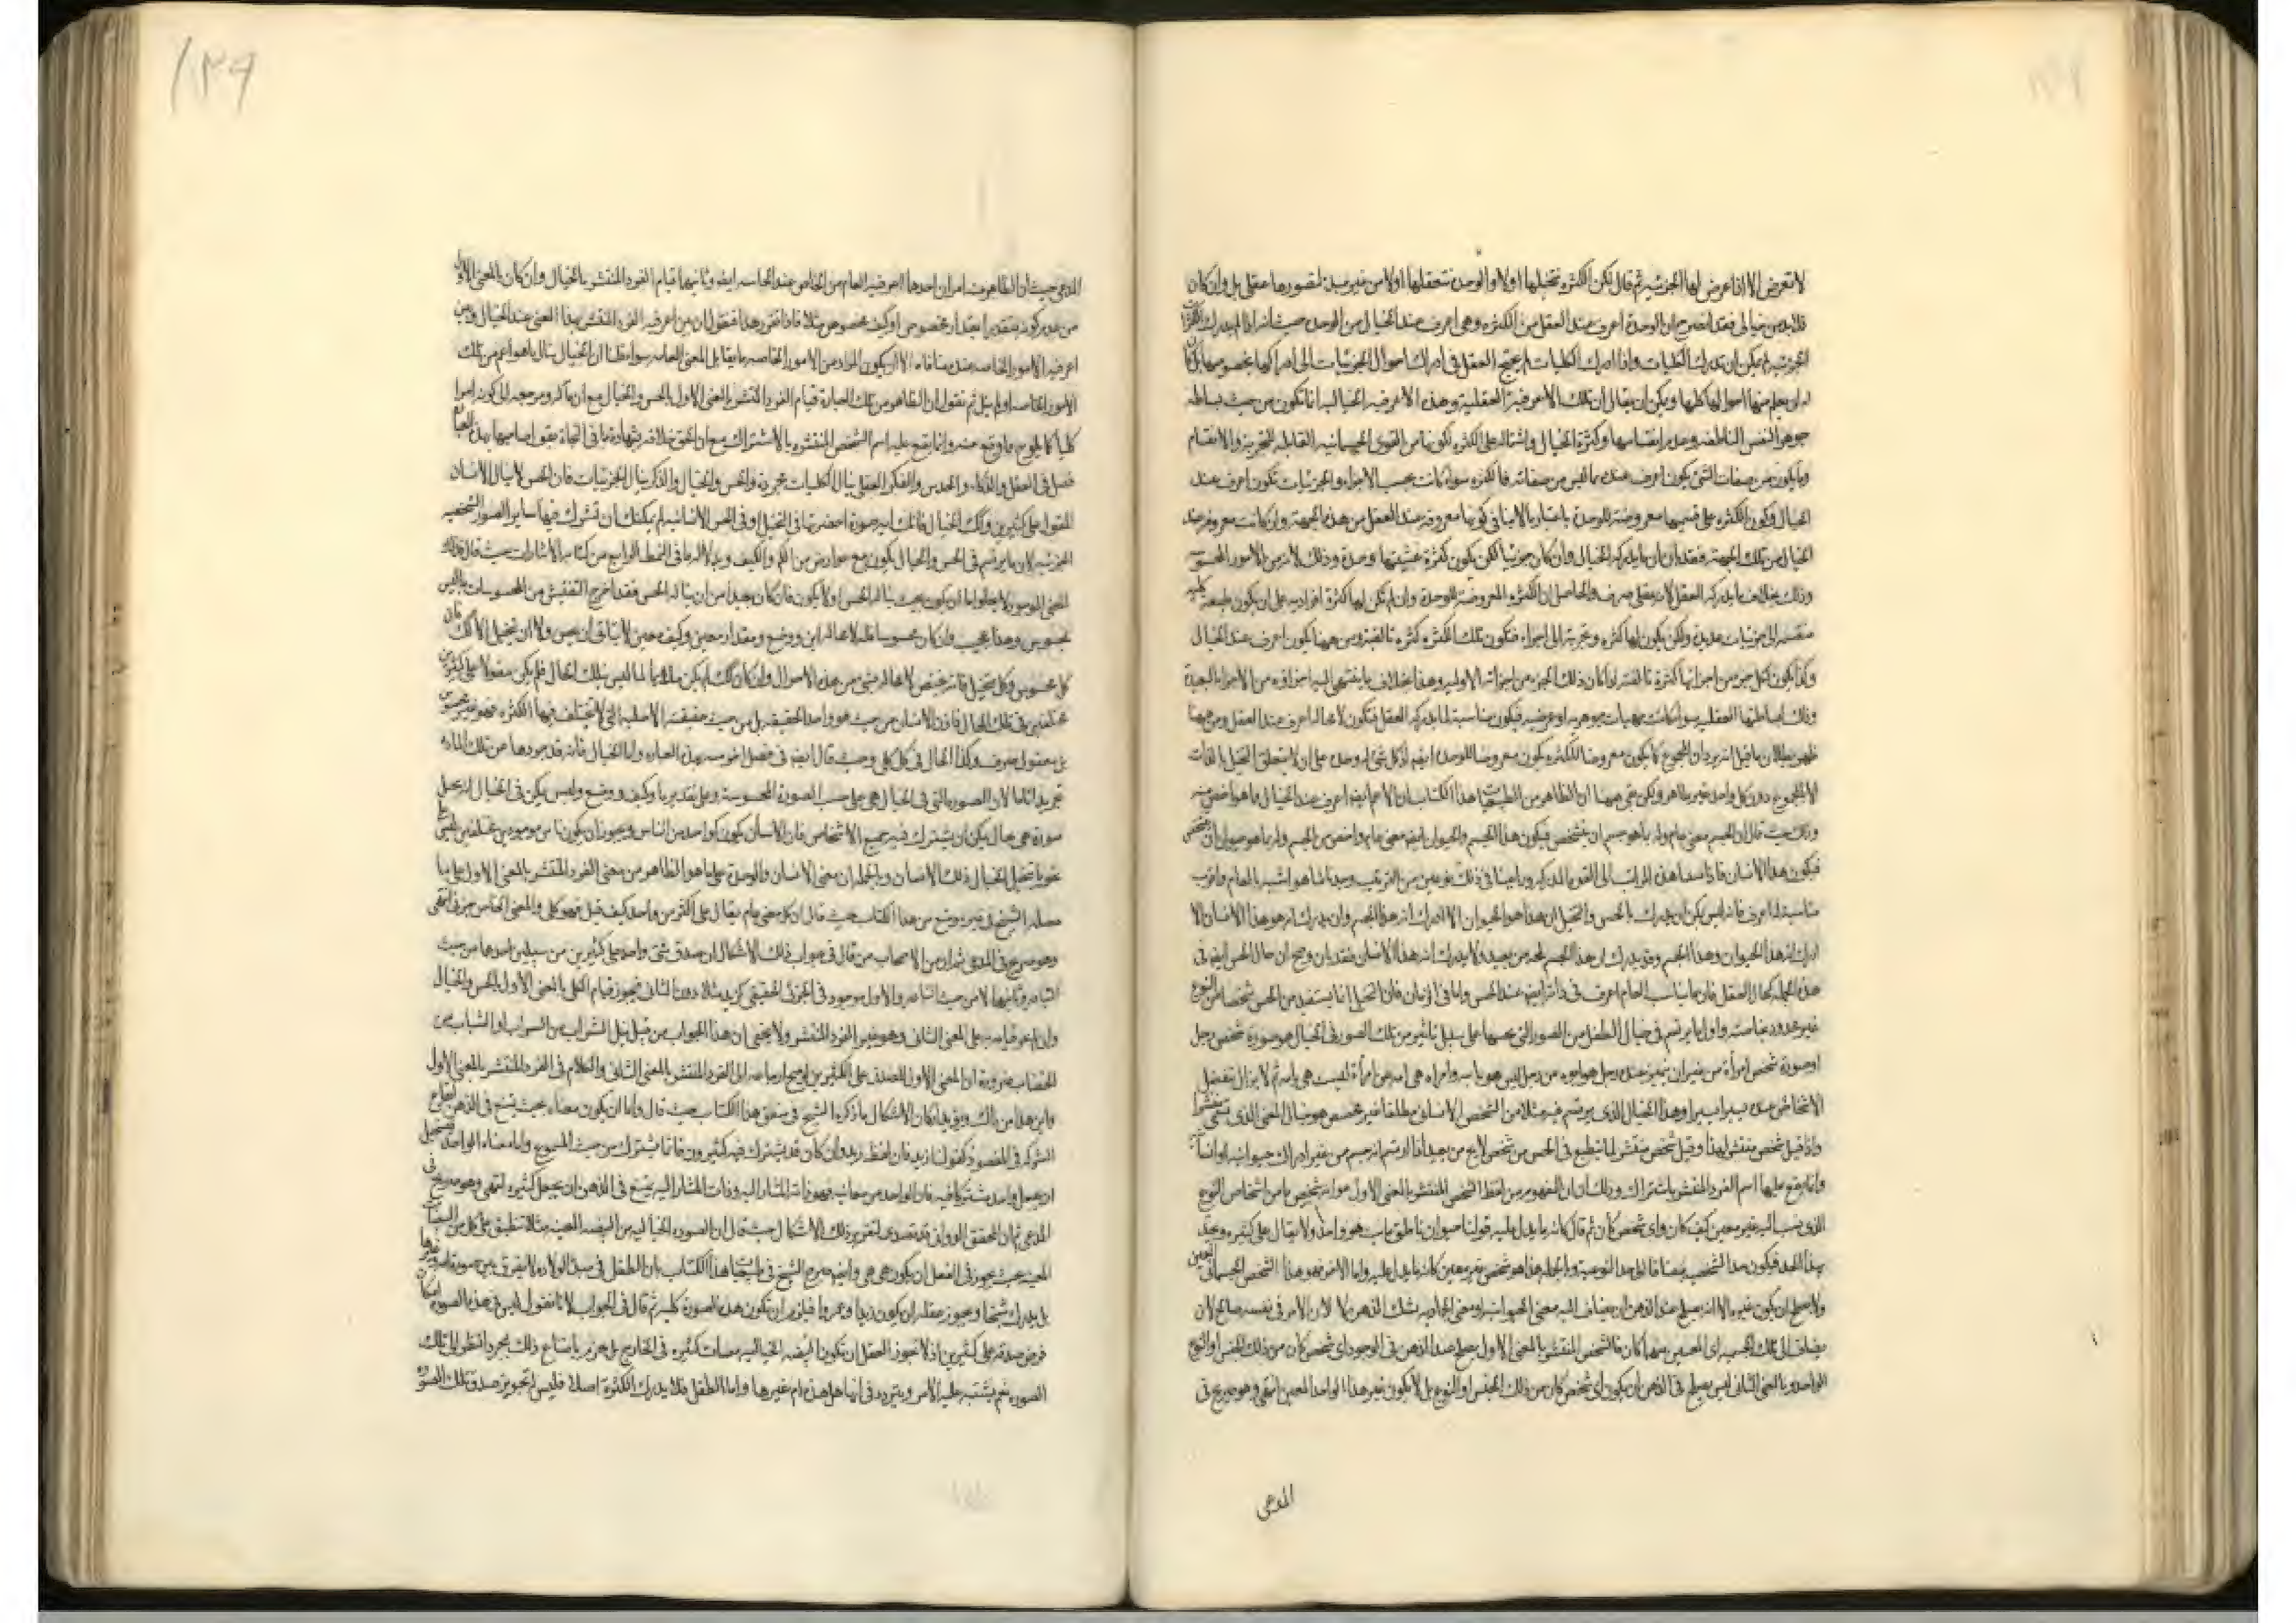 لا تعرض الا اذا عرض لها الجزئية ثم قال لكن الكثرة نتخيلها اولا والوحدة نتعقلها اولا من غير مبدء لتصورها عقلى بل وان كان
فلابد من خيالى فقد افصح ان الوحدة اعرف عند العقل من الكثرة وهى اعرف عند الخيال من الوحدة حيث انه
الجزئية لم يمكن ان يدرك الكليات واذا ادرك الكليات لم يحتج العقل فى ادراك احوال الجزئيات الى ادراكها بخصوصها
احوالها كلها ويمكن ان يقال ان تلك الاعرفية العقلية وهذه الاعرفية الخيالية انما تكون من حيث بساطة
جوهر النفس الناطقة وعدم انقسامها وكثرة الخيال واشتماله على الكثرة لكونها من القوى الجسمانية القابلة للتجزية والانقسام
وما يكون من صفات الشئ يكون اعرف عنده مما ليس من صفاته فالكثرة سواء كانت بحسب الاجزاء والجزئيات تكون اعرف عند
الخيال وكون الكثرة على قسميها معروضة للوحدة باعتبار لا ينافى كونها معروفة عند العقل من هذه الجهة وان كانت معروفة عند
الخيال من تلك الجهة فقد بان ان ما يدركه الخيال وان كان جزئيا لكن يكون كثرة غشيتها وحدة وذلك لانه من الامور
وذلك بخلاف ما يدركه العقل لانه عقلى صرف والحاصل ان الكثرة المعروضة للوحدة وان لم تكن لها كثرة افرادية على ان يكون طبيعة كلية
منقسمة الى جزئيات عديدة ولكن يكون لها كثرة وتجزية الى اجزاء فتكون تلك الكثرة كثرة تاليفية ومن هيهنا يكون اعرف عند الخيال
وكذا يكون لكل جزء من اجزائها كثرة تاليفية لو كان ذلك الجزء من اجزائه الاولية وهذا بخلاف ما ينتهى اليه افراقه من الاجزاء البعيدة
وذلك لبساطتها العقلية سواء كانت مهيات جوهرية او عرضية فيكون مناسبة لما يدركه العقل فتكون لا محالة اعرف عند العقل ومن هيهنا
ظهر بطلان ما قيل المجموع كما يكون معروضا للكثرة يكون معروضا للوحدة ايضا اذ كل شئ له وحدة على ان لا يتعلق التخيل بالذات
الا بالمجموع دون كل واحد غير ظاهر ولكن بقى هيهنا ان الظاهر من الطبيعيات هذا الكتاب ان الاعم ايضا اعرف عند الخيال مما هو اخص منه
وذلك حيث قال ان الجسم معنى عام وله بما هو جسم ان يتشخص فيكون هذا الجسم والحيوان ايضا معنى عام واخص من الجسم وله بما هو حيوان ان يتشخص
فيكون هذا الانسان فاذا نسبنا هذه المراتب الى القوة المدركة وراعينا فى ذلك نوعين من الترتيب وجدنا ما هو اشبه بالعام واقرب
مناسبة له اعرف فانه ليس يمكن ان يدرك بالحس والتخيل ان هذا هو الحيوان الا ادرك انه هذا الجسم وان يدرك انه هو هذا الانسان الا
ادرك انه هذا الحيوان وهذا الجسم وقد يدرك انه هذا الجسم لمحه من بعيد ولا يدرك انه هذا الانسان فقد بان وضح ان حال الحس ايضا فى
هذه الجملة كحال العقل فان ما يناسب العام اعرف فى ذاته ايضا عند الحس واما فى الزمان فان التخيل انما يستفيد من الحس شخصا من النوع
غير محدود بخاصية واول ما يرتسم فى خيال الطفل من الصور التى يحسها على سبيل تاثير من تلك الصور فى الخيال هو صورة شخص رجل
او صورة شخص امرأة من غير ان يتميز عنده رجل هو ابوه من رجل ليس هو بابيه وامراة هى امه من امرأة ليست هى بامه ثم لا يزال تنفصل
الاشخاص عنده يسيرا يسيرا وهذا الخيال الذى يرتسم فيه مثلا من الشخص الانسانى مطلقا غير مخصص هو خيال المعنى الذى يسمى منتشرا
واذا قيل شخص منتشر لهذا وقيل شخص منتشر لما ينطبع فى الحس من شخص لا يح من بعيد اذا ارتسم انه جسم من غير ادراك حيوانية او انسانية
وانما يقع عليها اسم الفرد المنتشر باشتراك وذلك ان المفهوم من لفظ الشخص المنتشر بالمعنى الاول هو انه شخص ما من اشخاص النوع
الذى ينسب اليه غير معين كيف كان واى شخص كان ثم قال كانه ما يدل عليه قولنا حيوان ناطق مايت هو واحد ولا يقال على كثيره
بهذا الحد فيكون حد الشخصية مضافا الى حد النوعية وبالجملة هذا هو شخص غير معين كانه ما يدل عليه واما الاخر فهو هذا الشخص الجسمانى المعين
ولا يصلح ان يكون غيره الا انه يصلح عند الذهن ان يضاف اليه معنى الحيوانية او معنى الجمادية بشك الذهن لا لان الامر فى نفسه صالح لان
يضاف الى تلك الجسمية اى المعنيين منهما كان فالشخص المنتشر بالمعنى الاول يصلح عند الذهن فى الوجود اى شخص كان من ذلك الجنس او النوع
الواحد وبالمعنى الثانى ليس يصلح فى الذهن ان يكون اى شخص كان من ذلك الجنس او النوع بل لا يكون غير هذا الواحد المعين انتهى وهو صريح فى
المدعى
١٣٩
المدعى حيث ان الظاهر منه امران احدهما اعرفية العام من الخاص عند الحاسة ايضا وثانيهما قيام الفرد المنتشر بالخيال وان كان بالمعنى الاول
من غير كونه متقدرا بمقدار مخصوص او كيف مخصوص مثلا فاذا تقرر هذا فنقول ان بين اعرفية الفرد المنتشر بهذا المعنى عند الخيال وبين
اعرفية الامور الخاصة عنده منافاة الا ان يكون المراد من الامور الخاصة ما يقابل المعنى العام سواء قلنا ان الخيال ينال ما هو اعم من تلك
الامور الخاصة او لم ينل ثم نقول ان الظاهر من تلك العبارة قيام الفرد المنتشر بالمعنى الاول بالحس والخيال مع ان مآله ومرجعه الى كونه امرا
كليا كما يلوح ما وقع منه وانما يقع عليه اسم الشخص المنتشر بالاشتراك مع ان الحق خلافه بشهادة ما فى النجاة
فصل فى العقل والذكاء والحدس والفكر العقل ينال الكليات مجردة والحس والخيال والذكر ينال الجزئيات فان الحس لا ينال الانسان
المقول على كثيرين وكذلك الخيال فانك اية صورة احضرتها فى التخيل او فى الحس الانسانية لم يمكنك ان تشرك فيها ساير الصور الشخصية
الجزئية لان ما يرتسم فى الحس والخيال يكون مع عوارض من الكم والكيف وبدلالة ما فى النمط الرابع من كتاب الاشارات حيث قال فذلك
المعنى الموجود لا يخلو اما ان يكون بحيث يناله الحس او لا يكون فان كان بعيدا من ان يناله الحس فقد اخرج التفتيش من المحسوسات ما ليس
بمحسوس وهذا عجيب وان كان محسوسا فله لا محالة اين ووضع ومقدار معين وكيف معين لا يتاتى ان يحس ولا ان يتخيل الا كذلك فان
كل محسوس وكل متخيل فانه يختص لا محالة بشئ من هذه الاحوال وان كان كذلك لم يكن ملائما لما ليس بتلك الحال فلم يكن مقولا على كثيرين
مختلفين فى تلك الحال فاذن الانسان من حيث هو واحد الحقيقة بل من حيث حقيقته الاصلية التى لا تختلف فيها الكثرة فهو غير محسوس
بل معقول صرف وكذا الحال فى كل كلى وحيث قال ايضا فى فصل اخر منه بهذه العبارة واما الخيال فانه قد جردها عن تلك المادة
تجريدا تاما لان الصورة التى فى الخيال هى على حسب الصورة المحسوسة وعلى تقدير ما وكيف ووضع وليس يمكن فى الخيال ان يتخيل
صورة هى بحال يمكن ان يشترك فيه جميع الاشخاص فان الانسان يكون كواحد من الناس ويجوز ان يكون ناس موجودين مختلفين ليس على
نحو ما تخيل الخيال ذلك الانسان وبالجملة ان معنى الانسان والوحدة على ما هو الظاهر من معنى الفرد المنتشر بالمعنى الاول على ما
الشيخ فى غير موضع من هذا الكتاب حيث قال ان كل معنى عام يقال على اكثر من واحد كيف قيل فهو كلى والمعنى الخاص جزئى انتهى
وهو صريح فى المدعى من الاصحاب من قال فى جواب ذلك الاشكال ان صدق شئ واحد على كثيرين من سبيلين احدهما من حيث
وثانيهما لا من حيث والاول موجود فى الجزئى الحقيقى كزيد مثلا دون الثانى فيجوز قيام الكلى بالمعنى الاول بالحس والخيال
وان امتنع قيامه به على المعنى الثانى وهو غير الفرد المنتشر ولا يخفى ان هذا الجواب من قبيل نيل الشراب من السراب او الشباب من
الخضاب ضرورة ان المعنى الاول للصدق على الكثيرين لم يصح ارجاعه الى الفرد المنتشر بالمعنى الثانى والكلام فى الفرد المنتشر بالمعنى الاول
واين هذا من ذلك ويؤيد امكان الاشكال ما ذكره الشيخ فى منطق هذا الكتاب حيث قال واما ان يكون معناه بحيث يمنع فى الذهن ايقاع
الشركة فى المقصود كقولنا زيد فان لفظ زيد وان كان قد يشترك فيه كثيرون فانما يشترك من حيث المسموع واما معناه الواحد فيستحيل
ان يجعل واحد مشتركا فيه فان الواحد من معانيه فهو ذات المشار اليه وذات المشار اليه يمتنع فى الذهن ان يجعل كثيره انتهى وهو صريح فى
المدعى ثم ان المحقق الدوانى قد تصدى لتقرير ذلك الاشكال حيث قال ان الصورة الخيالية من البيضة المعينة مثلا تنطبق على كل من البيضات
المعينة بحيث يجوز فى العقل ان يكون هى هى وايضا صرح الشيخ فى طبيعيات هذا الكتاب بان الطفل فى مبدء الولادة لا يفرق بين صورة امه وغيرها
بل يدرك شبحا ويجوز عقله ان يكون زيدا وعمروا فيلزم ان تكون هذه الصورة كلية ثم قال فى الجواب لانا نقول ليس فى هذه الصورة امكان
فرض صدقه على كثيرين اذ لا يجوز العقل ان تكون البيضة الخيالية بيضات كثيرة فى الخارج بل يجزم بامتناع ذلك بمجرد النظر الى تلك
الصورة نعم يشتبه عليه الامر ويتردد فى انها هل هذه ام غيرها واما الطفل فلا يدرك الكثرة اصلا فليس له تجويز صدق تلك الصورة